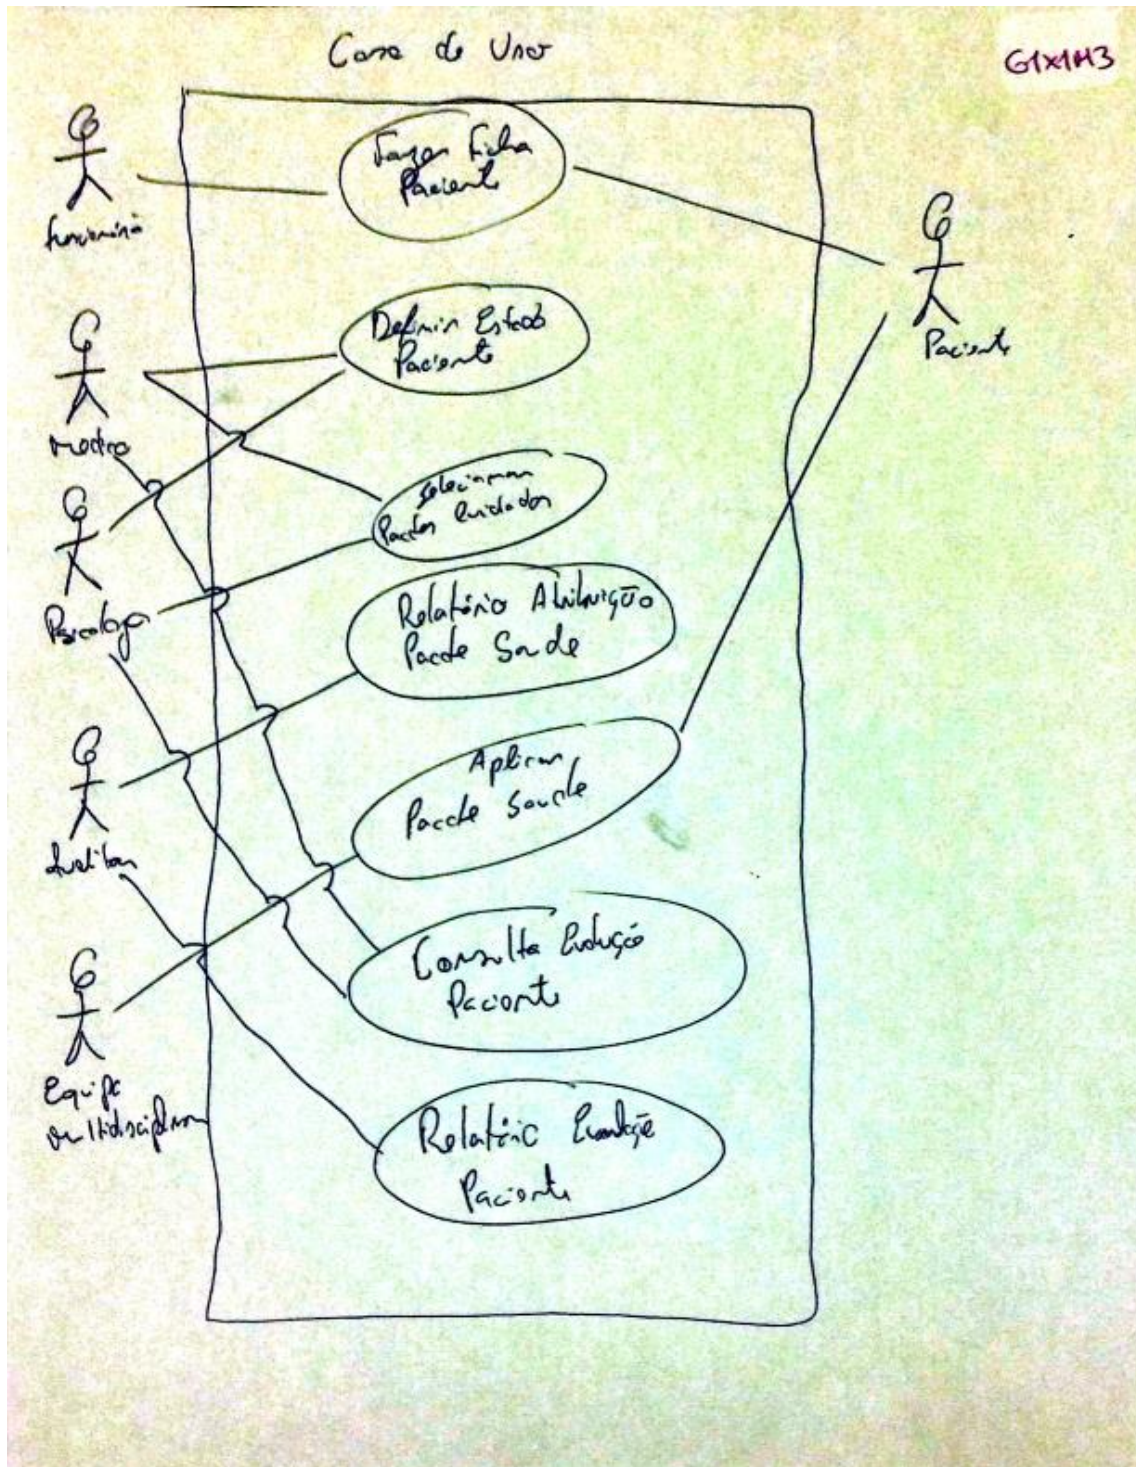 Caso de Uso
G1x1M3
Fazer Ficha
Paciente
funcionário
Paciente
Definir Estado
Paciente
Medico
Selecionar
Pacotes Cuidados
Psicologo
Relatório Atribuição
Pacote Saude
Aplicar
Pacote Saude
Auditor
Consulta Evolução
Paciente
Equipe
multidisciplinar
Relatório Evolução
Paciente